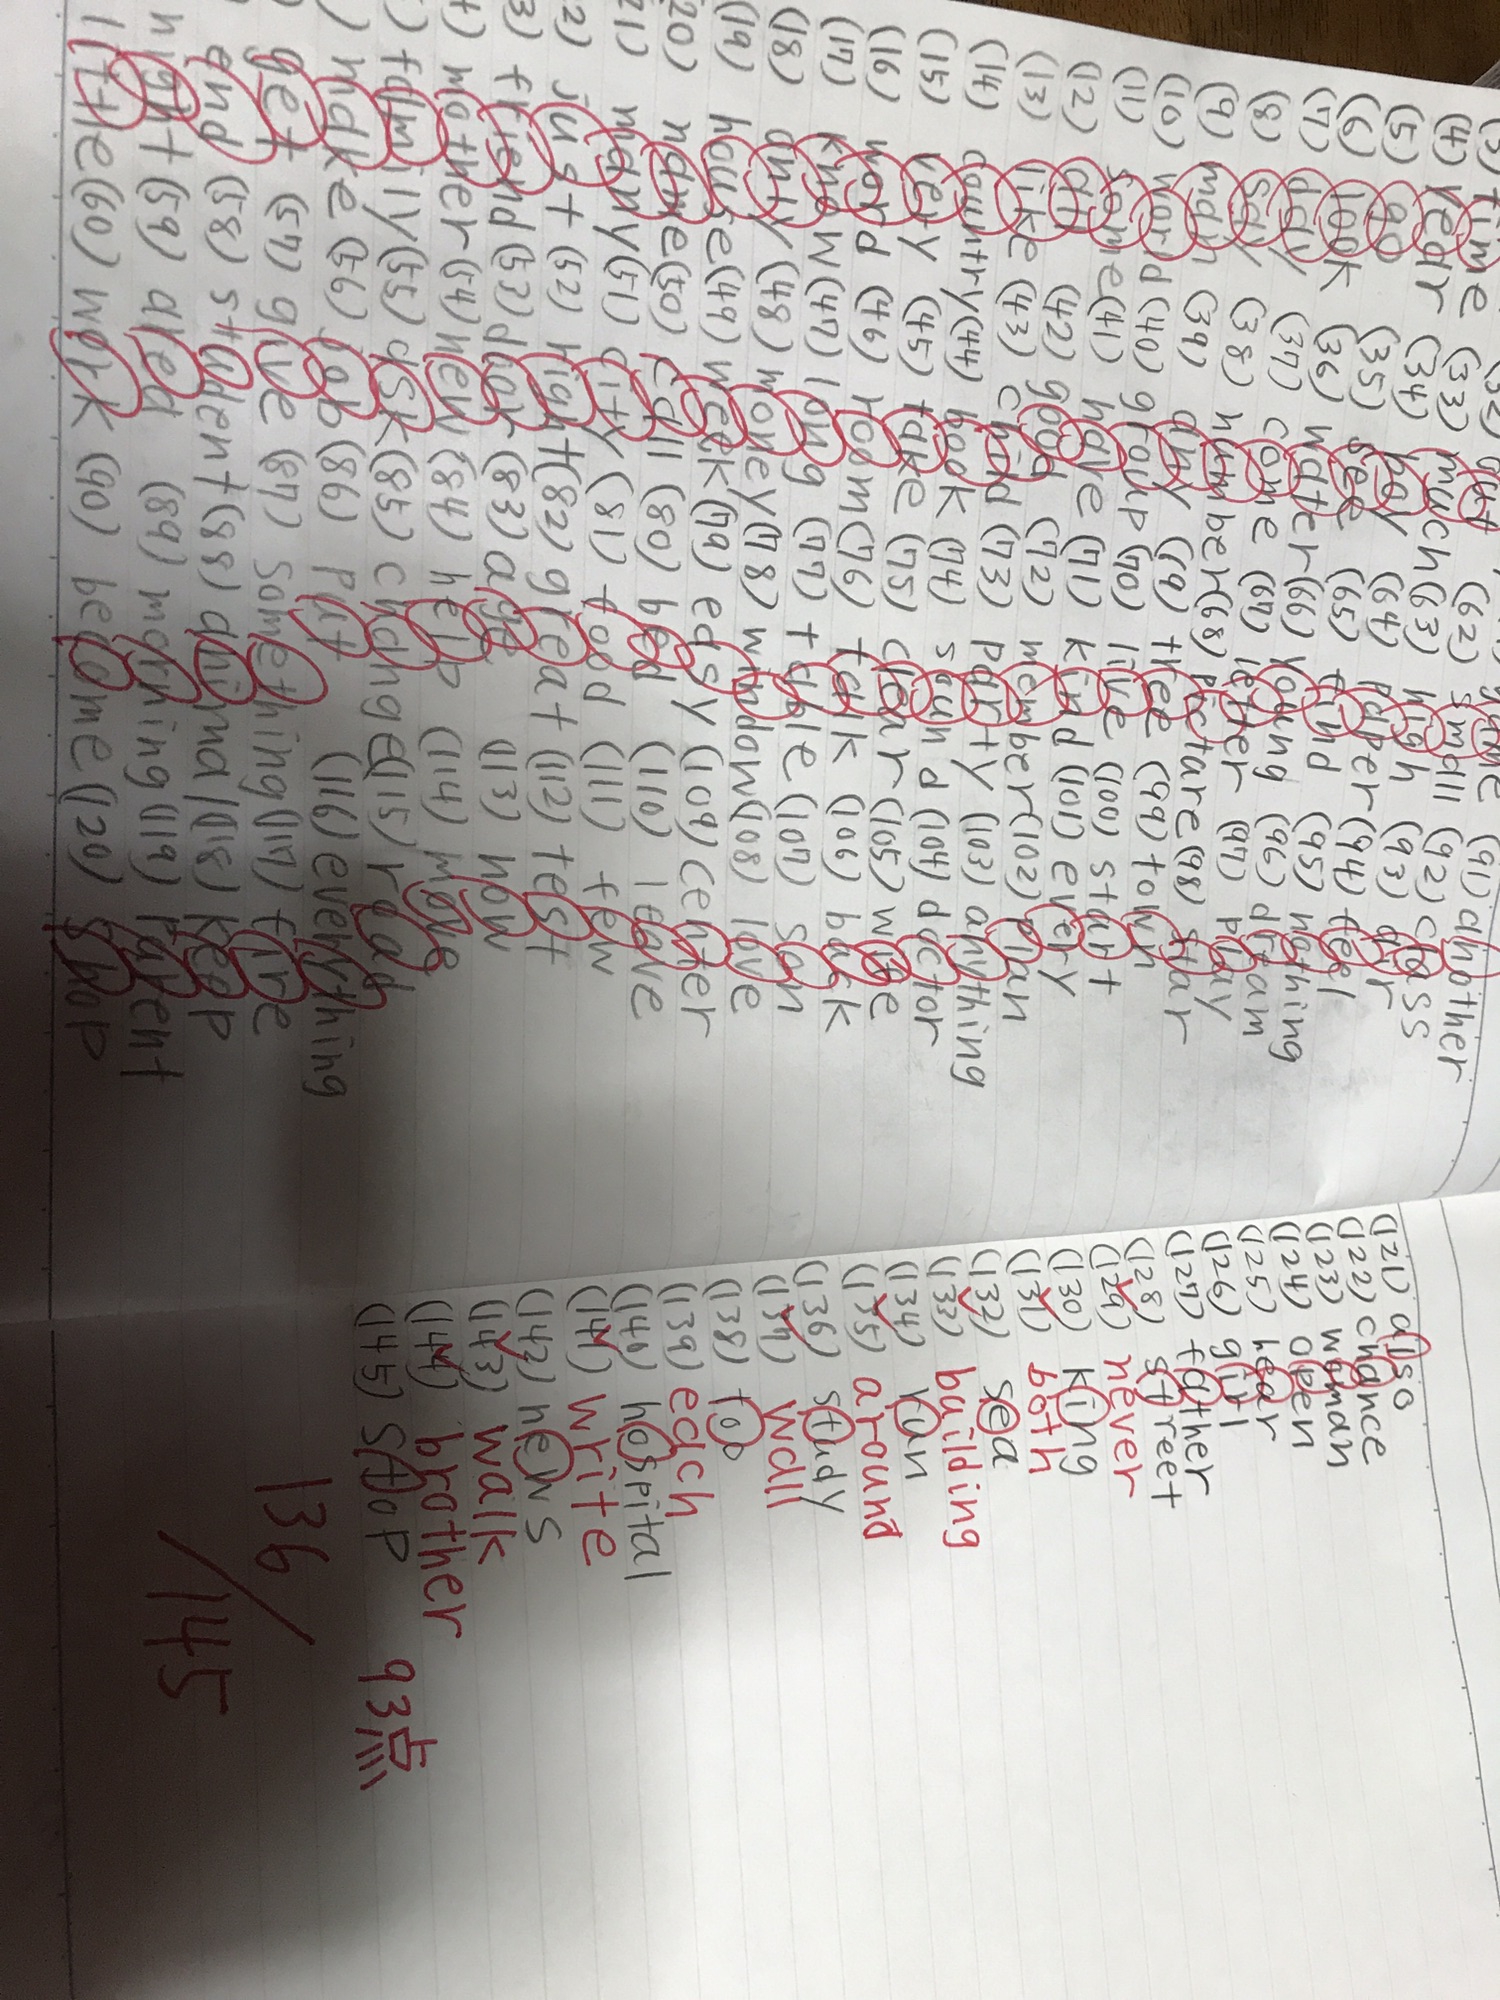 (91) another
(32) out (62) small (92) class
time (33) much (63) high (93) air
(4) year (34) pay (64) paper (94) feel
(5) go (35) see (65) find (95) nothing
(6) look (36) water (66) young (96) dream
(7) day (37) come (67) letter (97) play
(8) say (38) number (68) picture (98) star
(9) man (39) any (69) three (99) town
(10) (40) group (70) live (100) start
(11) same (41) have (71) kind (101) every
(12) (42) good (72) member (102) plan
(13) like (43) child (73) party (103) anything
(14) country (44) book (74) sound (104) doctor
(15) very (45) take (75) clear (105) wife
(16) word (46) room (76) talk (106) back
(17) know (47) long (77) table (107)
(18) only (48) money (78) window (108) love
(19) house (49) week (79) easy (109) center
20) name (50) call (80) bed (110) leave
21) many (51) city (81) food (111) few
2) just (52) right (82) great (112) test
3) friend (53) door (83) age (113) now
mother (54) new (84) help (114) move
) family (55) ask (85) change (115) road
) make (56) job (86) put (116) everything
get (57) give (87) something (117) fire
end (58) student (88) animal (118) keep
night (59) area (89) morning (119) parent
little (60) work (90) become (120) shop
(121) also
(122) chance
(123) woman
(124) open
(125) hear
(126) girl
(127) father
(128) street
(129) never
(130) king
(131) both
(132) sea
(133) building
(134) run
(135) around
(136) study
(137) wall
(138) too
(139) each
(140) hospital
(141) write
(142) news
(143) walk
(144) brother
(145) stop
93点
136/145